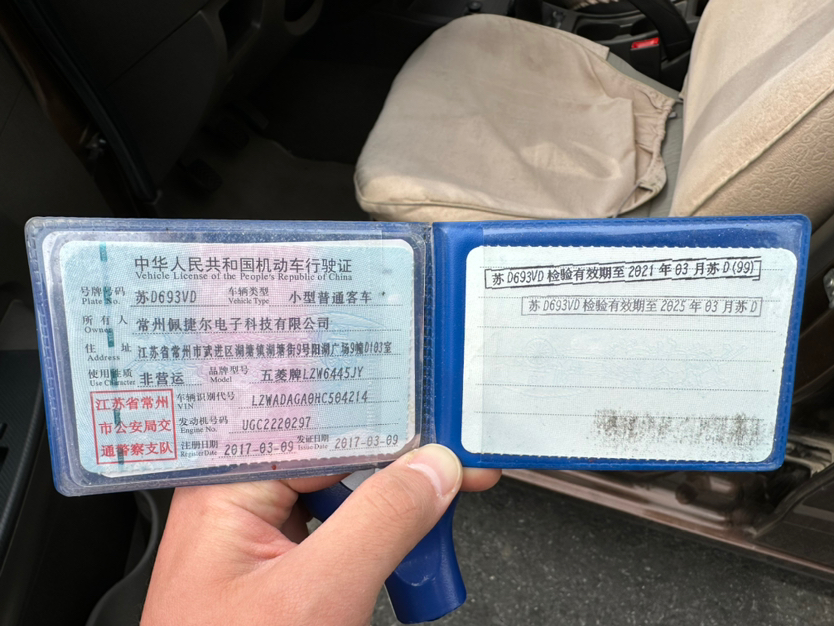 中华人民共和国机动车行驶证
Vehicle License of the People's Republic of China
号牌号码 苏D693VD 车辆类型 小型普通客车
Plate No. Vehicle Type
所有人 常州佩捷尔电子科技有限公司
Owner
住址 江苏省常州市武进区湖塘镇湖塘街9号阳湖广场9幢D103室
Address
使用性质 非营运 品牌型号 五菱牌LZW6445JY
Use Character Model
江苏省常州
市公安局交
通警察支队
车辆识别代号 LZWADAGA0HC504214
VIN
发动机号码 UGC2220297
Engine No.
注册日期 2017-03-09 发证日期 2017-03-09
Register Date Issue Date
苏D693VD 检验有效期至 2021年03月苏D(99)
苏D693VD 检验有效期至 2025年03月苏D